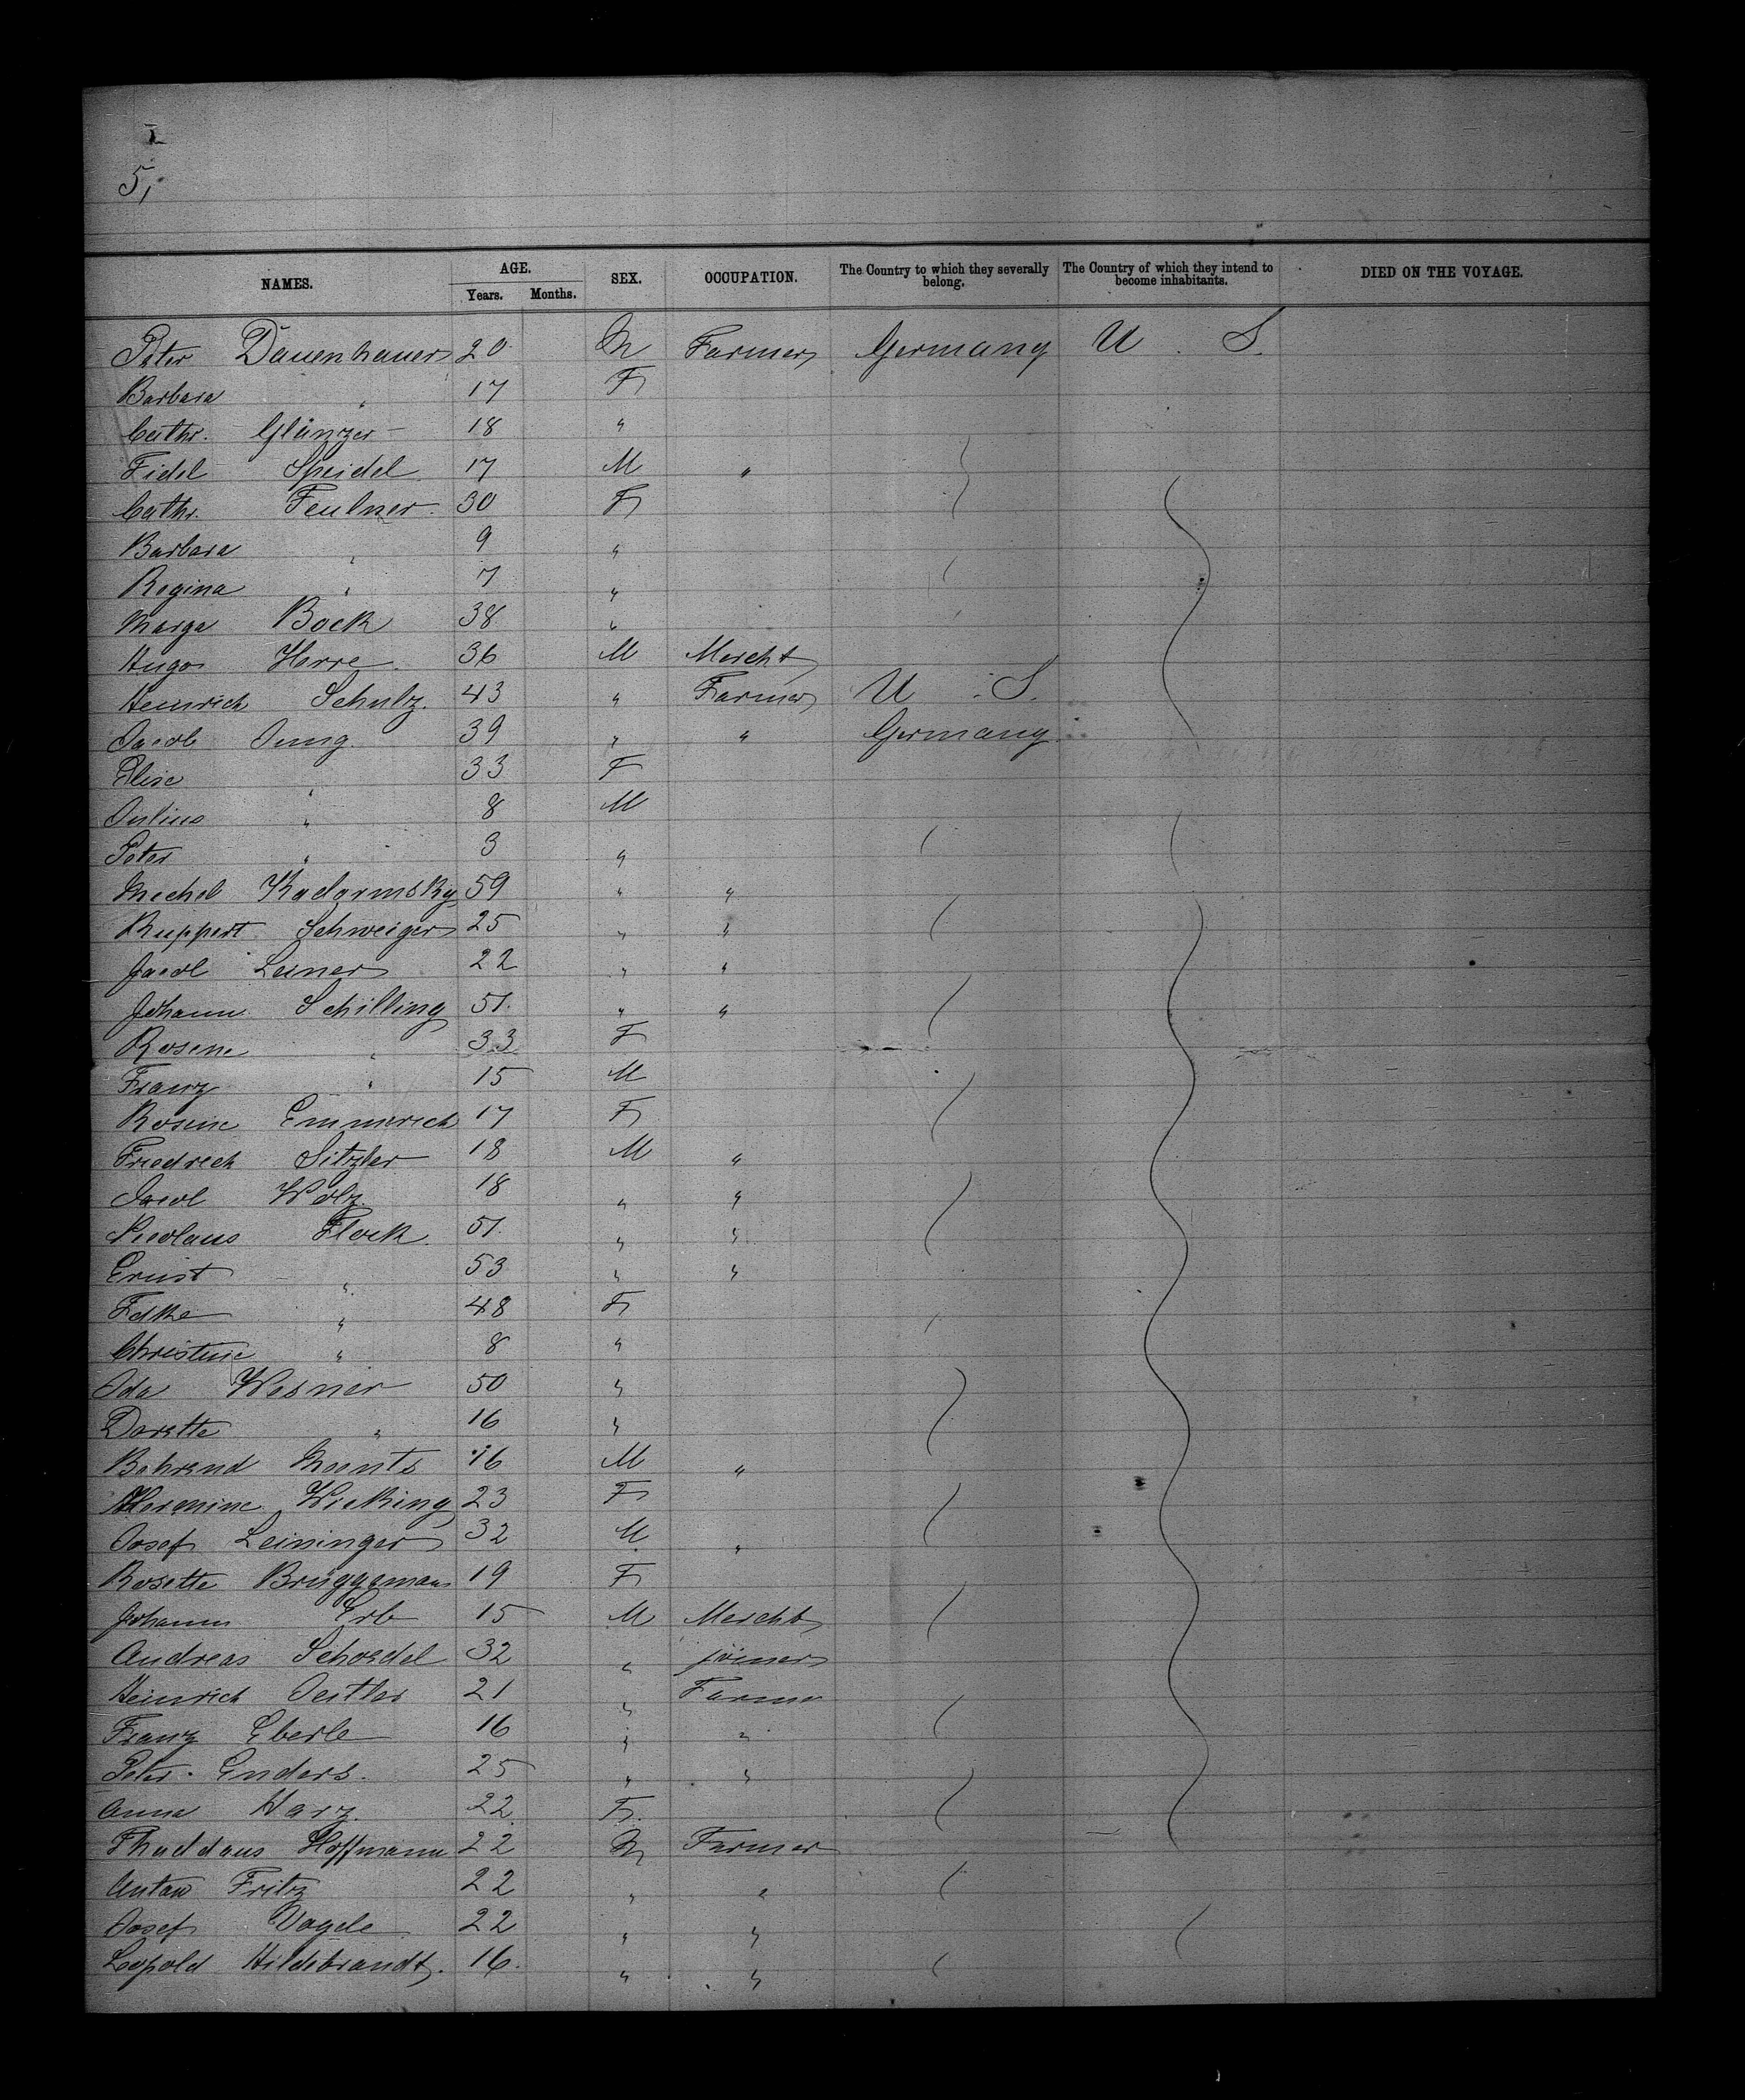 5,
NAMES. AGE. Years. Months. SEX. OCCUPATION. The Country to which they severally belong. The Country of which they intend to become inhabitants. DIED ON THE VOYAGE.
Peter Dauenhauer 20 M Farmer Germany U. S.
Barbara " 17 F
Cathr. Glänzer 18 "
Fidel Speidel 17 M "
Cathr. Feulner 30 F
Barbara " 9 "
Regina " 7 "
Marga Bock 38 "
Hugo Herre 36 M Mercht
Heinrich Schulz 43 " Farmer U. S.
Jacob Jung 39 " " Germany
Elise " 33 F
Julius " 8 M
Peter " 3 "
Mechel 59 " "
Ruppert Schweiger 25 " "
Jacob Leiner 22 " "
Johann Schilling 51 " "
Rosine " 33 F
Franz " 15 M
Rosine Emmerich 17 F
Friedrich Sitzler 18 M "
Jacob Wolz 18 " "
Nicolaus Flock 51 " "
Ernst " 53 " "
Edke " 48 F
Christine " 8 "
Ida Wesner 50 "
Dorette " 16 "
Behrend Meents 16 M "
Hermine Wieking 23 F
Josef Leininger 32 M "
Rosette Brüggemann 19 F
Johann Erb 15 M Mercht
Andreas Schoedel 32 " joiner
Heinrich Oestler 21 " Farmer
Franz Eberle 16 " "
Peter Enders 25 " "
Anna Harz 22 F
Thaddaus Hoffmann 22 M Farmer
Anton Fritz 22 " "
Josef Vogele 22 " "
Leopold Hildebrandt 16 " "